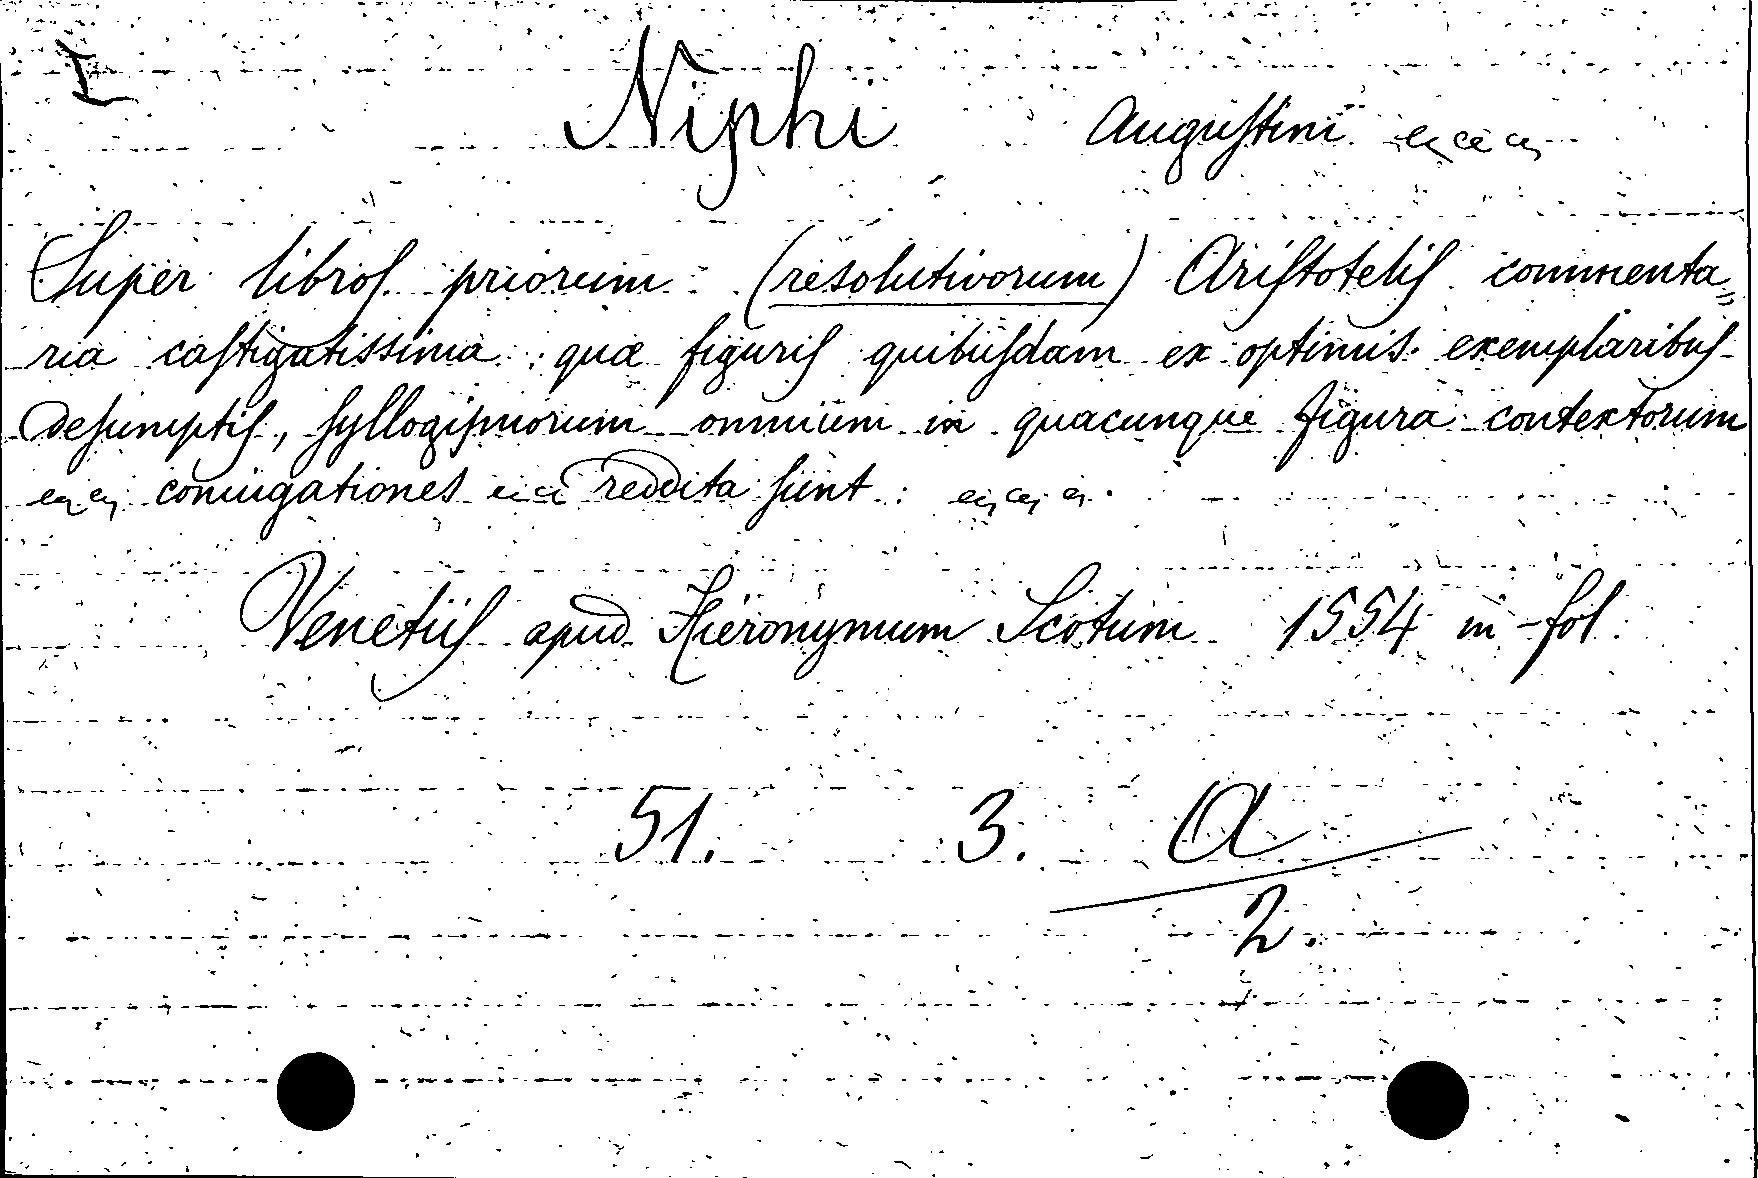 I Niphi Augustini
Super libros priorum (resolutivorum) Aristotelis commenta„
ria castigatissima: quæ figuris quibusdam ex optimis exemplaribus
desumptis, syllogismorum omnium in quacunque figura contextorum
coniugationes reddita sunt:
Venetiis apud Hieronymum Scotum 1554 in-fol.
51. 3. A
2.